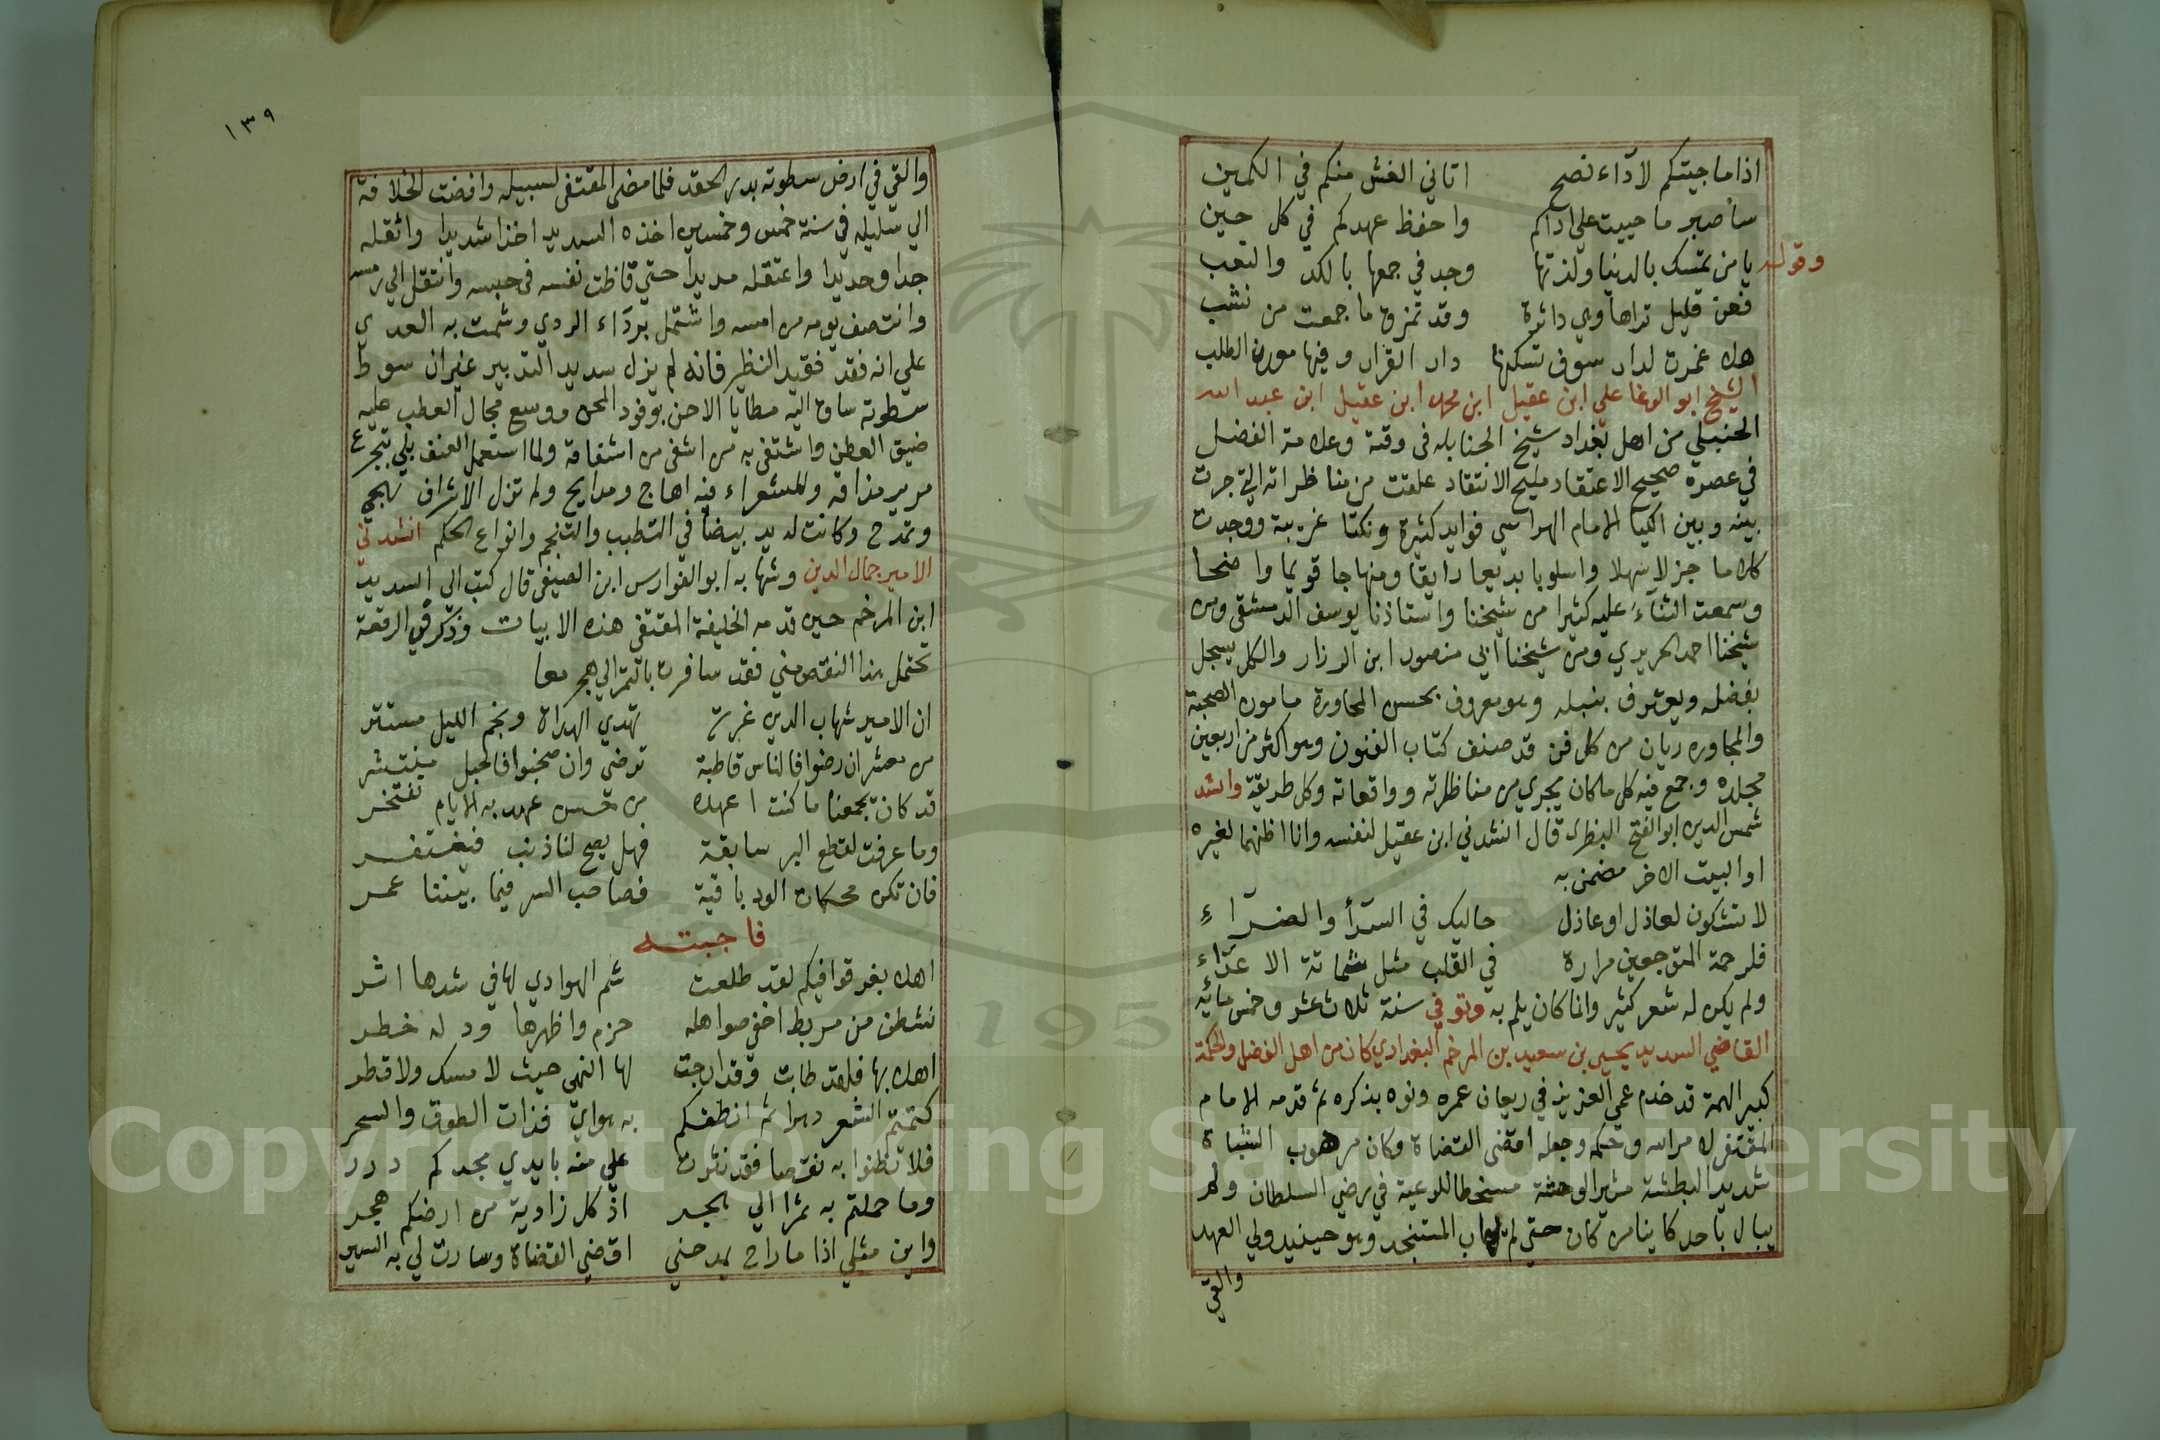 اذا ما جيتكم لاداء نصح اتاني الغش منكم في الكمين
سأصبر ما حييت علي اذاكم واحفظ عهدكم في كل حين
وقوله
يا من تمسك بالدنيا ولذتها وجد في جمعها بالكد والتعب
فعن قليل تراها وي دائرة وقد تمزق ما جمعت من نشب
هلا عمرت لدار سوف تسكنها دار القرار وفيها معدن الطلب
الشيخ ابو الوفا علي ابن عقيل ابن محمد ابن عقيل ابن عبد الله
الحنبلي من اهل بغداد شيخ الحنابله في وقته وعلامة الفضل
في عصره صحيح الاعتقاد مليح الانتقاد علقت من مناظراته التي جرت
بينه وبين الكيا الامام الهراسي فوايد كثيرة ونكتا غريبة ووجدت
كلاما جزلا سهلا واسلوبا بديعا رايقا ومنهاجا قويما واضحا
وسمعت الثناء عليه كثيرا من شيخنا واستاذنا يوسف الدمشقي ومن
شيخنا احمد الحريري ومن شيخنا ابي منصور ابن الرزاز والكل يسجل
بفضله ويعترف بنبله وهو معروف بحسن المحاورة مامون الصحبة
والمجاوره ريان من كل فن قد صنف كتاب الفنون وهو اكثر من اربعين
مجلده وجمع فيه كل ما كان يجري من مناظراته وواقعاته وكل طريقة وانشد
شمس الدين ابو الفتح النطنزي قال انشدني ابن عقيل لنفسه وانا اظنهما لغيره
او البيت الاخر مضمن به
لا تشكون لعاذل او عاذل حاليك في السرأ والضرّاء
فلرحمة المتوجعين مرارة في القلب مثل شماتة الاعداء
ولم يكن له شعر كثير وانما كان يلم به وتوفي سنة ثلاث عشر وخمس مائه
القاضي السديد يحيى بن سعيد بن المرخم البغدادي كان من اهل الفضل والحكمة
كبير الهمة قد خدم عمي العزيز في ريعان عمره ونوه بذكره ثم قدمه الامام
المقتفي لامر الله وحكمه وجعله اقضى القضاة وكان مرهوب الشباة
شديد البطشة مثير الوحشة مسخطا للرعية في رضي السلطان ولم
يبال باحد كاينا من كان حتي لم يهاب المستنجد وهو حينيد ولي العهد
والقي
١٣٩
والقي في ارض سطوته بذر الحقد فلما مضى المقتفي لسبيله وافضت الخلافة
الي سليله في سنة خمس وخمسين اخذه السديد اخذا شديدا واثقله
جدا وحديدا واعتقله مديدا حتي قاظت نفسه في حبسه وانتقل الي رمسه
وانتصف يومه من امسه واشتمل برداء الردي وشمت به العدي
علي انه فقد فقيد النظير فانه لم يزل سديد التدبير غير ان سوط
سطوته ساق اليه مطايا الاحن بوفود المحن ووسع مجال العطب عليه
ضيق العطن واشتفى به من اشفى من اشفاقه ولما استعمل العنف بلي بتجرع
مرير مذاقه وللشعراء فيه اهاج ومدايح ولم تزل الاشراف تهجي
وتمدح وكانت له يد بيضأ في التطبب والتنجم وانواع الحكم انشدني
الامير جمال الدين وشهابه ابو الفوارس ابن الصيفي قال كتب الي السديد
ابن المرخم حين قدمه الخليفة المقتفي هذه الابيات وذكر في الرقعة
تحتمل هذا النقص مني فقد سافرت بالتمر الي هجر معا
ان الامير شهاب الدين غرته تهدي الهداة ونجم الليل مستتر
من معشر ان رضوا فالناس قاطبة ترضي وان ضحبوا فالحبل منتشر
قد كان تجمعنا ما كنت اعهده من حسن عهد به الايام تفتخر
وما عرفت لقطع البر سابقة فهل يصح لنا ذنب فيغتفر
فان تكن محكمات الود باقية فصاحب السر فيما بيننا عمر
فاجبته
اهلا بغر قوافيكم لقد طلعت شم الهوادي لها في شدها اشر
نشطن من مربط اخفي صواهله حزم واظهرها ود له خطر
اهلا بها فلقد طابت وقد ارجت لها النهى حيث لا مسك ولا قطر
كتمتم الشعر دهرا ثم انطقكم به هواي فذات الطوق والسحر
فلا تظنوا به نقصا فقد نثرت علي منه بايدي مجدكم درر
وما حملتم به تمرا الي هجر اذ كل زاوية من ارضكم هجر
واين مثلي اذا ما راح يمدحني اقضي القضاة وسارت لي به السير